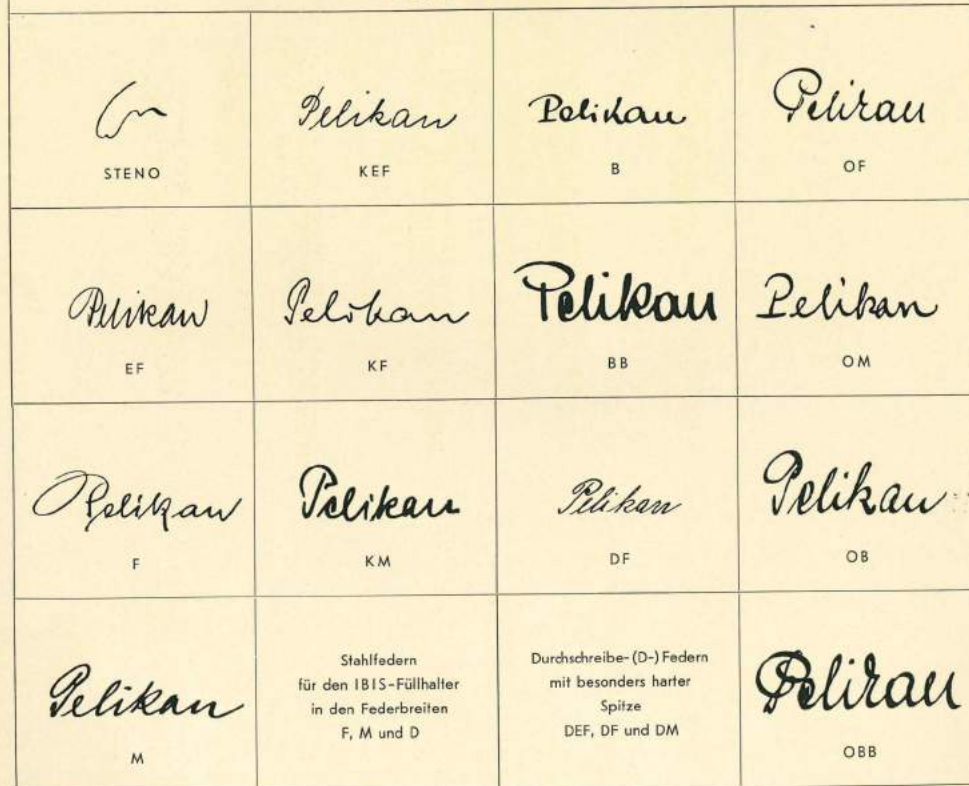 STENO
Pelikan
KEF
Pelikan
B
Pelikan
OF
Pelikan
EF
Pelikan
KF
Pelikan
BB
Pelikan
OM
Pelikan
F
Pelikan
KM
Pelikan
DF
Pelikan
OB
Pelikan
M
Stahlfedern
für den IBIS-Füllhalter
in den Federbreiten
F, M und D
Durchschreibe-(D-)Federn
mit besonders harter
Spitze
DEF, DF und DM
Pelikan
OBB